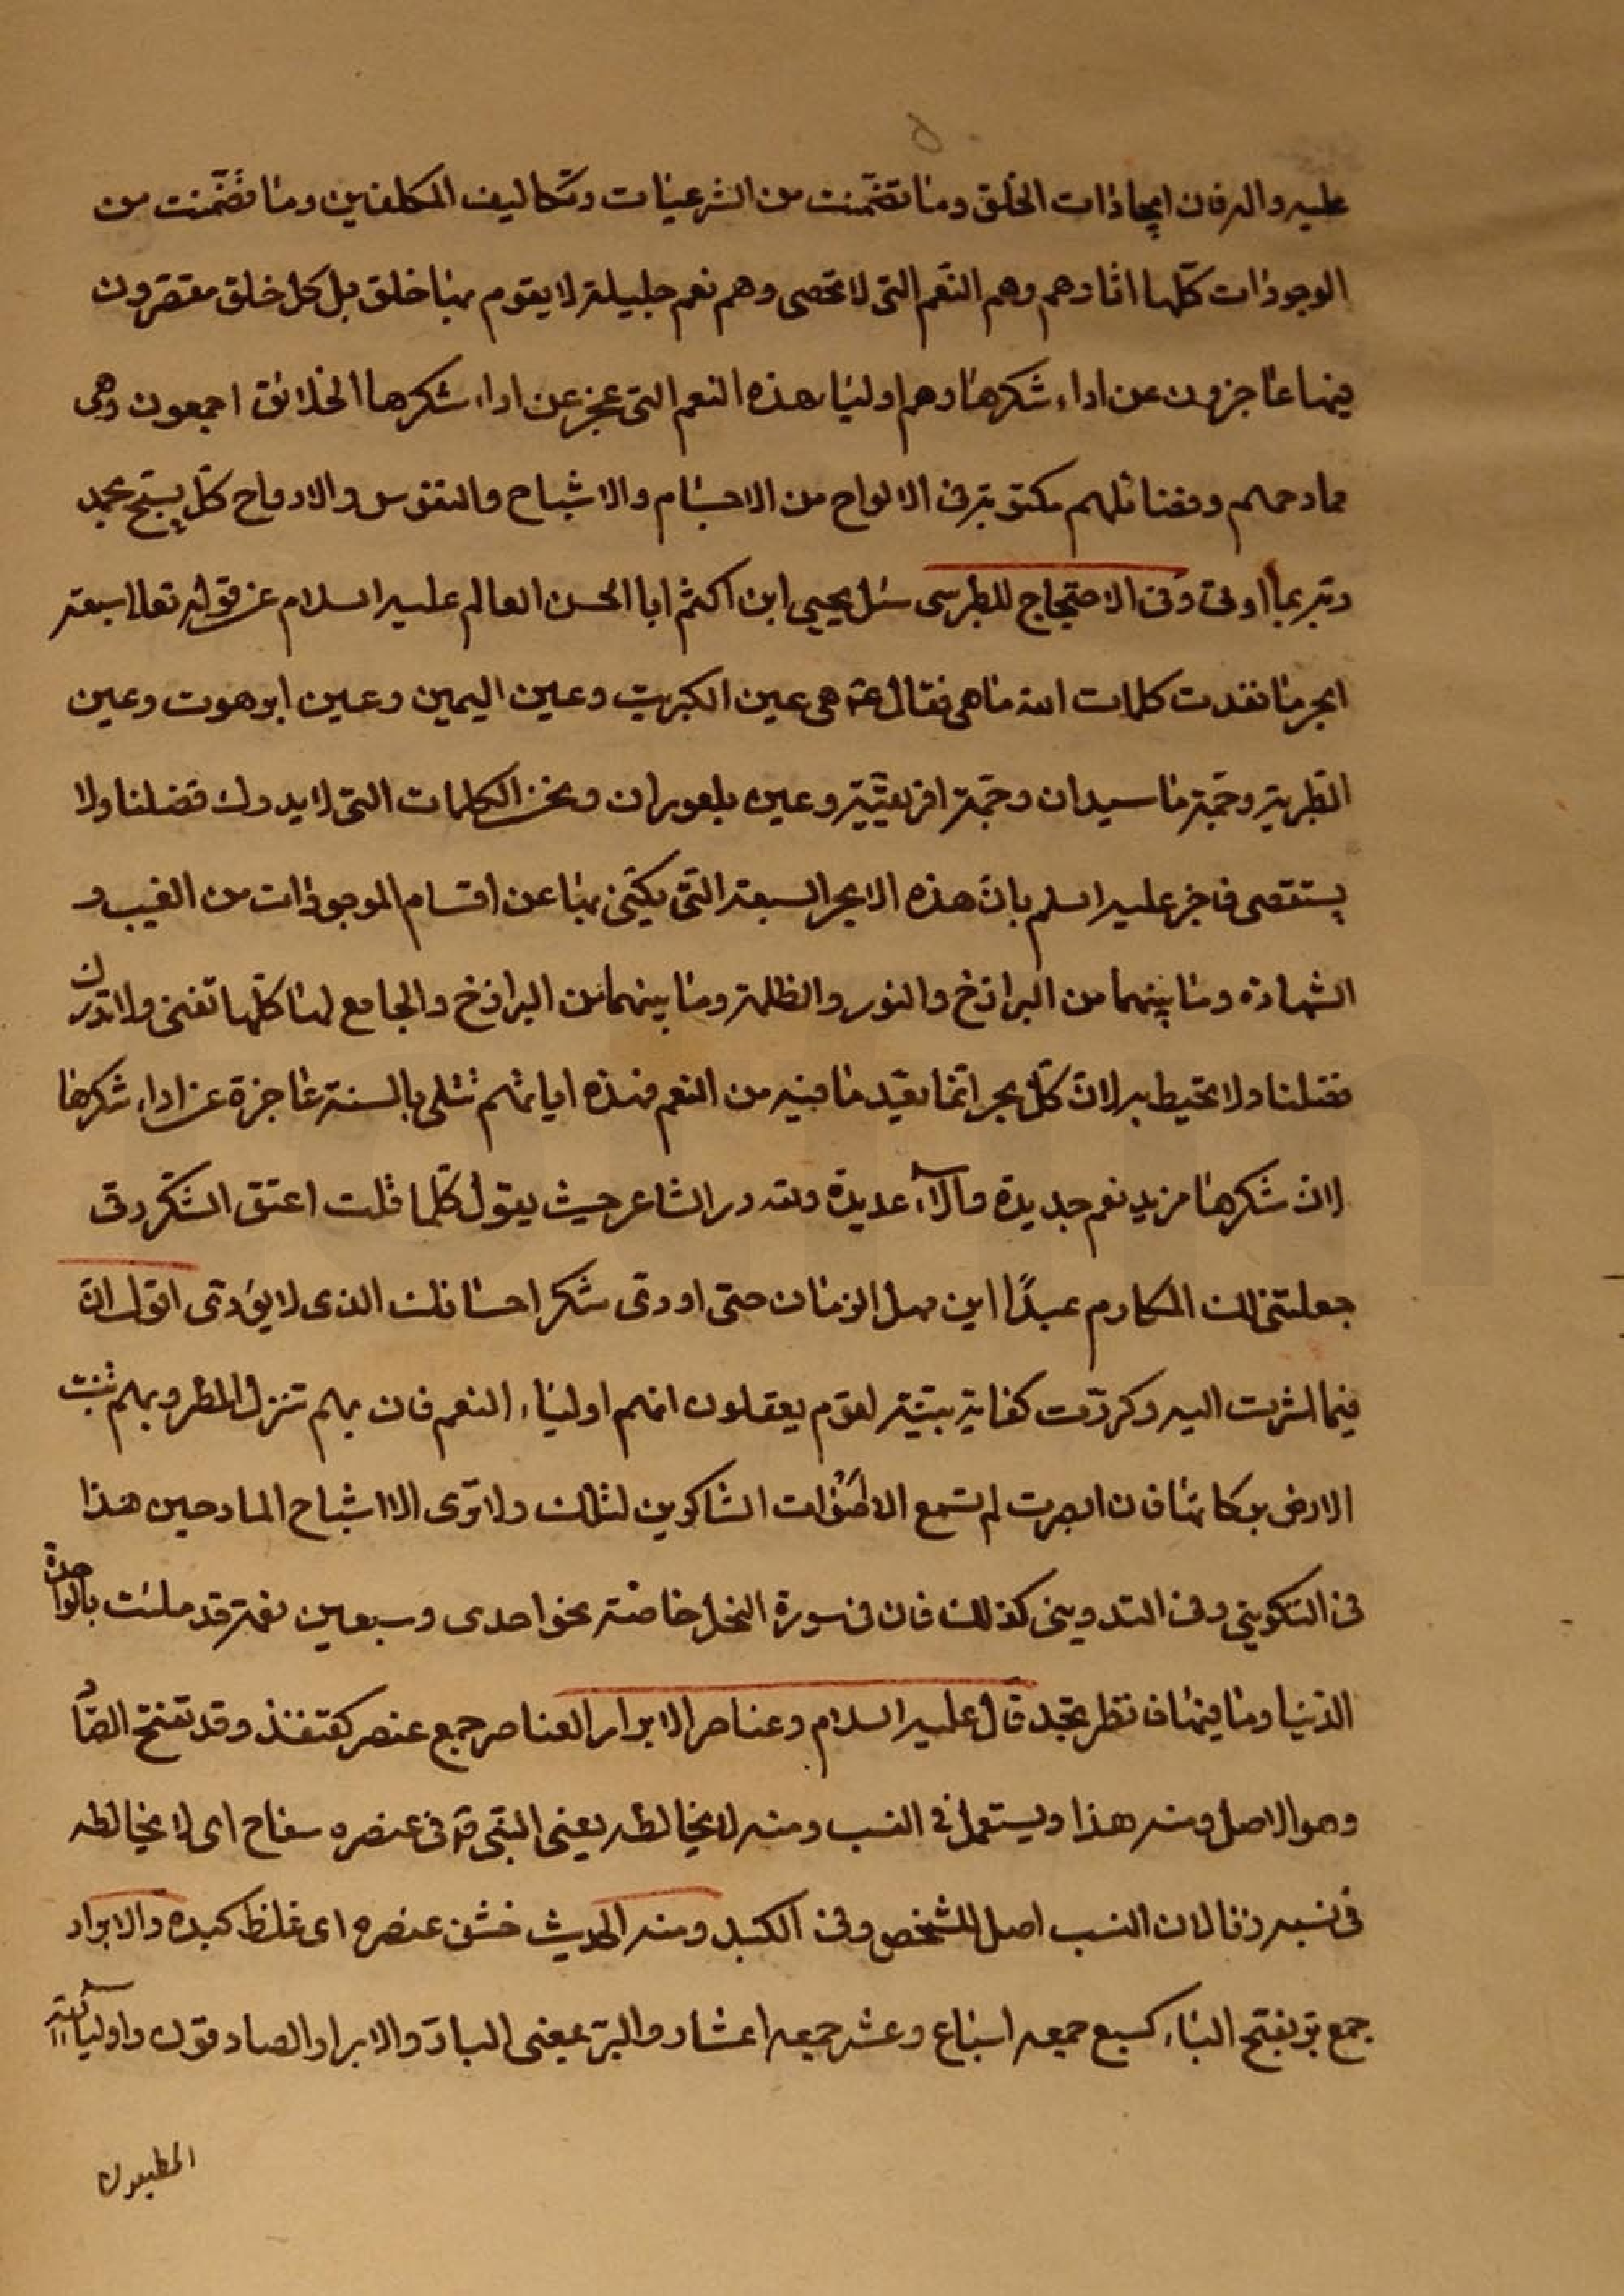 عليه والله فان ايجادات الخلق وما تضمنت من الشرعيات وتكاليف المكلفين وما تضمنت من
الوجودات كلها اثارهم وهم النعم التى لا تحصى وهم نعم جليلة لا يقوم بها خلق بل كل خلق مقصرون
فيها عاجزون عن اداء شكرها وهم اولياء هذه النعم التى عجز عن اداء شكرها الخلائق اجمعون وهى
مادحهم وفضائلهم مكتوبة فى الالواح من الاجسام والاشباح والنفوس والارواح كل يسبح بحمد
ربه بما اوتى وفى الاحتجاج للطبرسى سئل يحيى ابن اكثم ابا الحسن العالم عليه السلام عن قوله تعالى سبعة
ابحر ما نفدت كلمات الله ما هى فقال ع هى عين الكبريت وعين اليمين وعين ابرهوت وعين
الطبرية وحمة ماسيدان وحمة افريقية وعين بلعوران ونحن الكلمات التى لا يدرك فضلنا ولا
يستقصى فاخبر عليه السلم بان هذه الابحر السبعة التى يكنى بها عن اقسام الموجودات من الغيب و
الشهادة وما بينهما من البرازخ والنور والظلمة وما بينهما من البرازخ والجامع لها كلها تفنى ولا تدرك
فضلنا ولا تحيط به لان كل بحر انما يقيد ما فيه من النعم فهذه اياتهم تتلى بالسنة عاجزة عن اداء شكرها
لان شكرها مزيد نعم جديدة والآء عديدة ولله در الشاعر حيث يقول كلما قلت اعتق الشكر رقى
جعلتنى لك المكارم عبدًا اين مهل الزمان حتى اودى شكر احسانك الذى لا يؤدى اقول ان
فيما اشرت اليه وكررت كفاية بينة لقوم يعقلون انهم اولياء النعم فان بهم تنزل المطر وبهم تنبت
الارض بركاتها فان ابصرت لم تسمع الا اصوات الشاكرين لتلك ولا ترى الا اشباح المادحين هذا
فى التكوينى وفى التدوينى كذلك فان فى سورة النحل خاصة نحو احدى وسبعين نعمة قد ملئت بالواحدة
الدنيا وما فيها فانظر تجد قال عليه السلام وعناصر الابرار العناصر جمع عنصر كقنفذ وقد تفتح الصاد
وهو الاصل ومنه هذا ويستعمل فى النسب ومنه لا يخالطه يعنى النبى ص فى عنصره سفاح اى لا يخالطه
فى نسبه زنا لان النسب اصل الشخص وفى الكبد ومنه الحديث خشن عنصره اى غلظ كبده والابرار
جمع بر بفتح الباء كسبع جمعه اسباع وعشر جمعه اعشار والبر بمعنى البار والابرار الصادقون واولياء الله
المطيعون